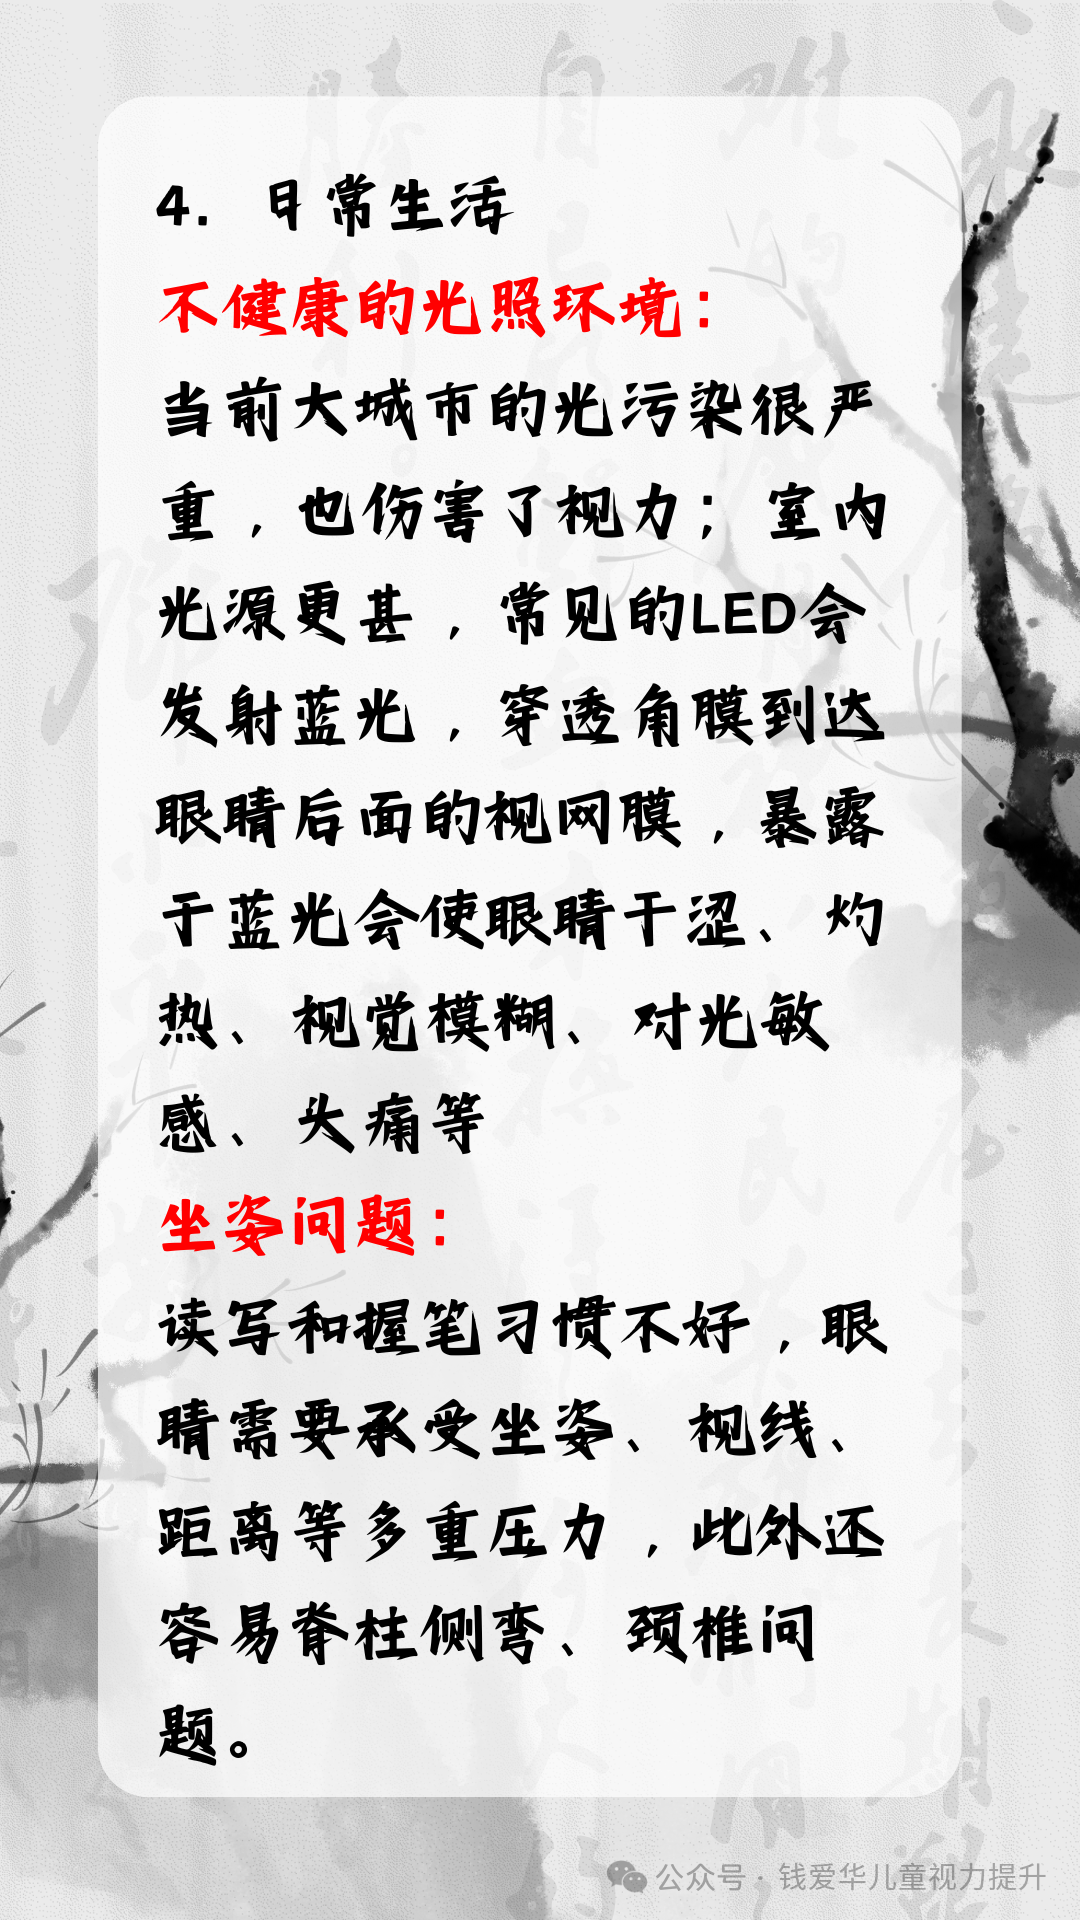 4. 日常生活
不健康的光照环境：
当前大城市的光污染很严
重，也伤害了视力；室内
光源更甚，常见的LED会
发射蓝光，穿透角膜到达
眼睛后面的视网膜，暴露
于蓝光会使眼睛干涩、灼
热、视觉模糊、对光敏
感、头痛等
坐姿问题：
读写和握笔习惯不好，眼
睛需要承受坐姿、视线、
距离等多重压力，此外还
容易脊柱侧弯、颈椎问
题。
公众号·钱爱华儿童视力提升